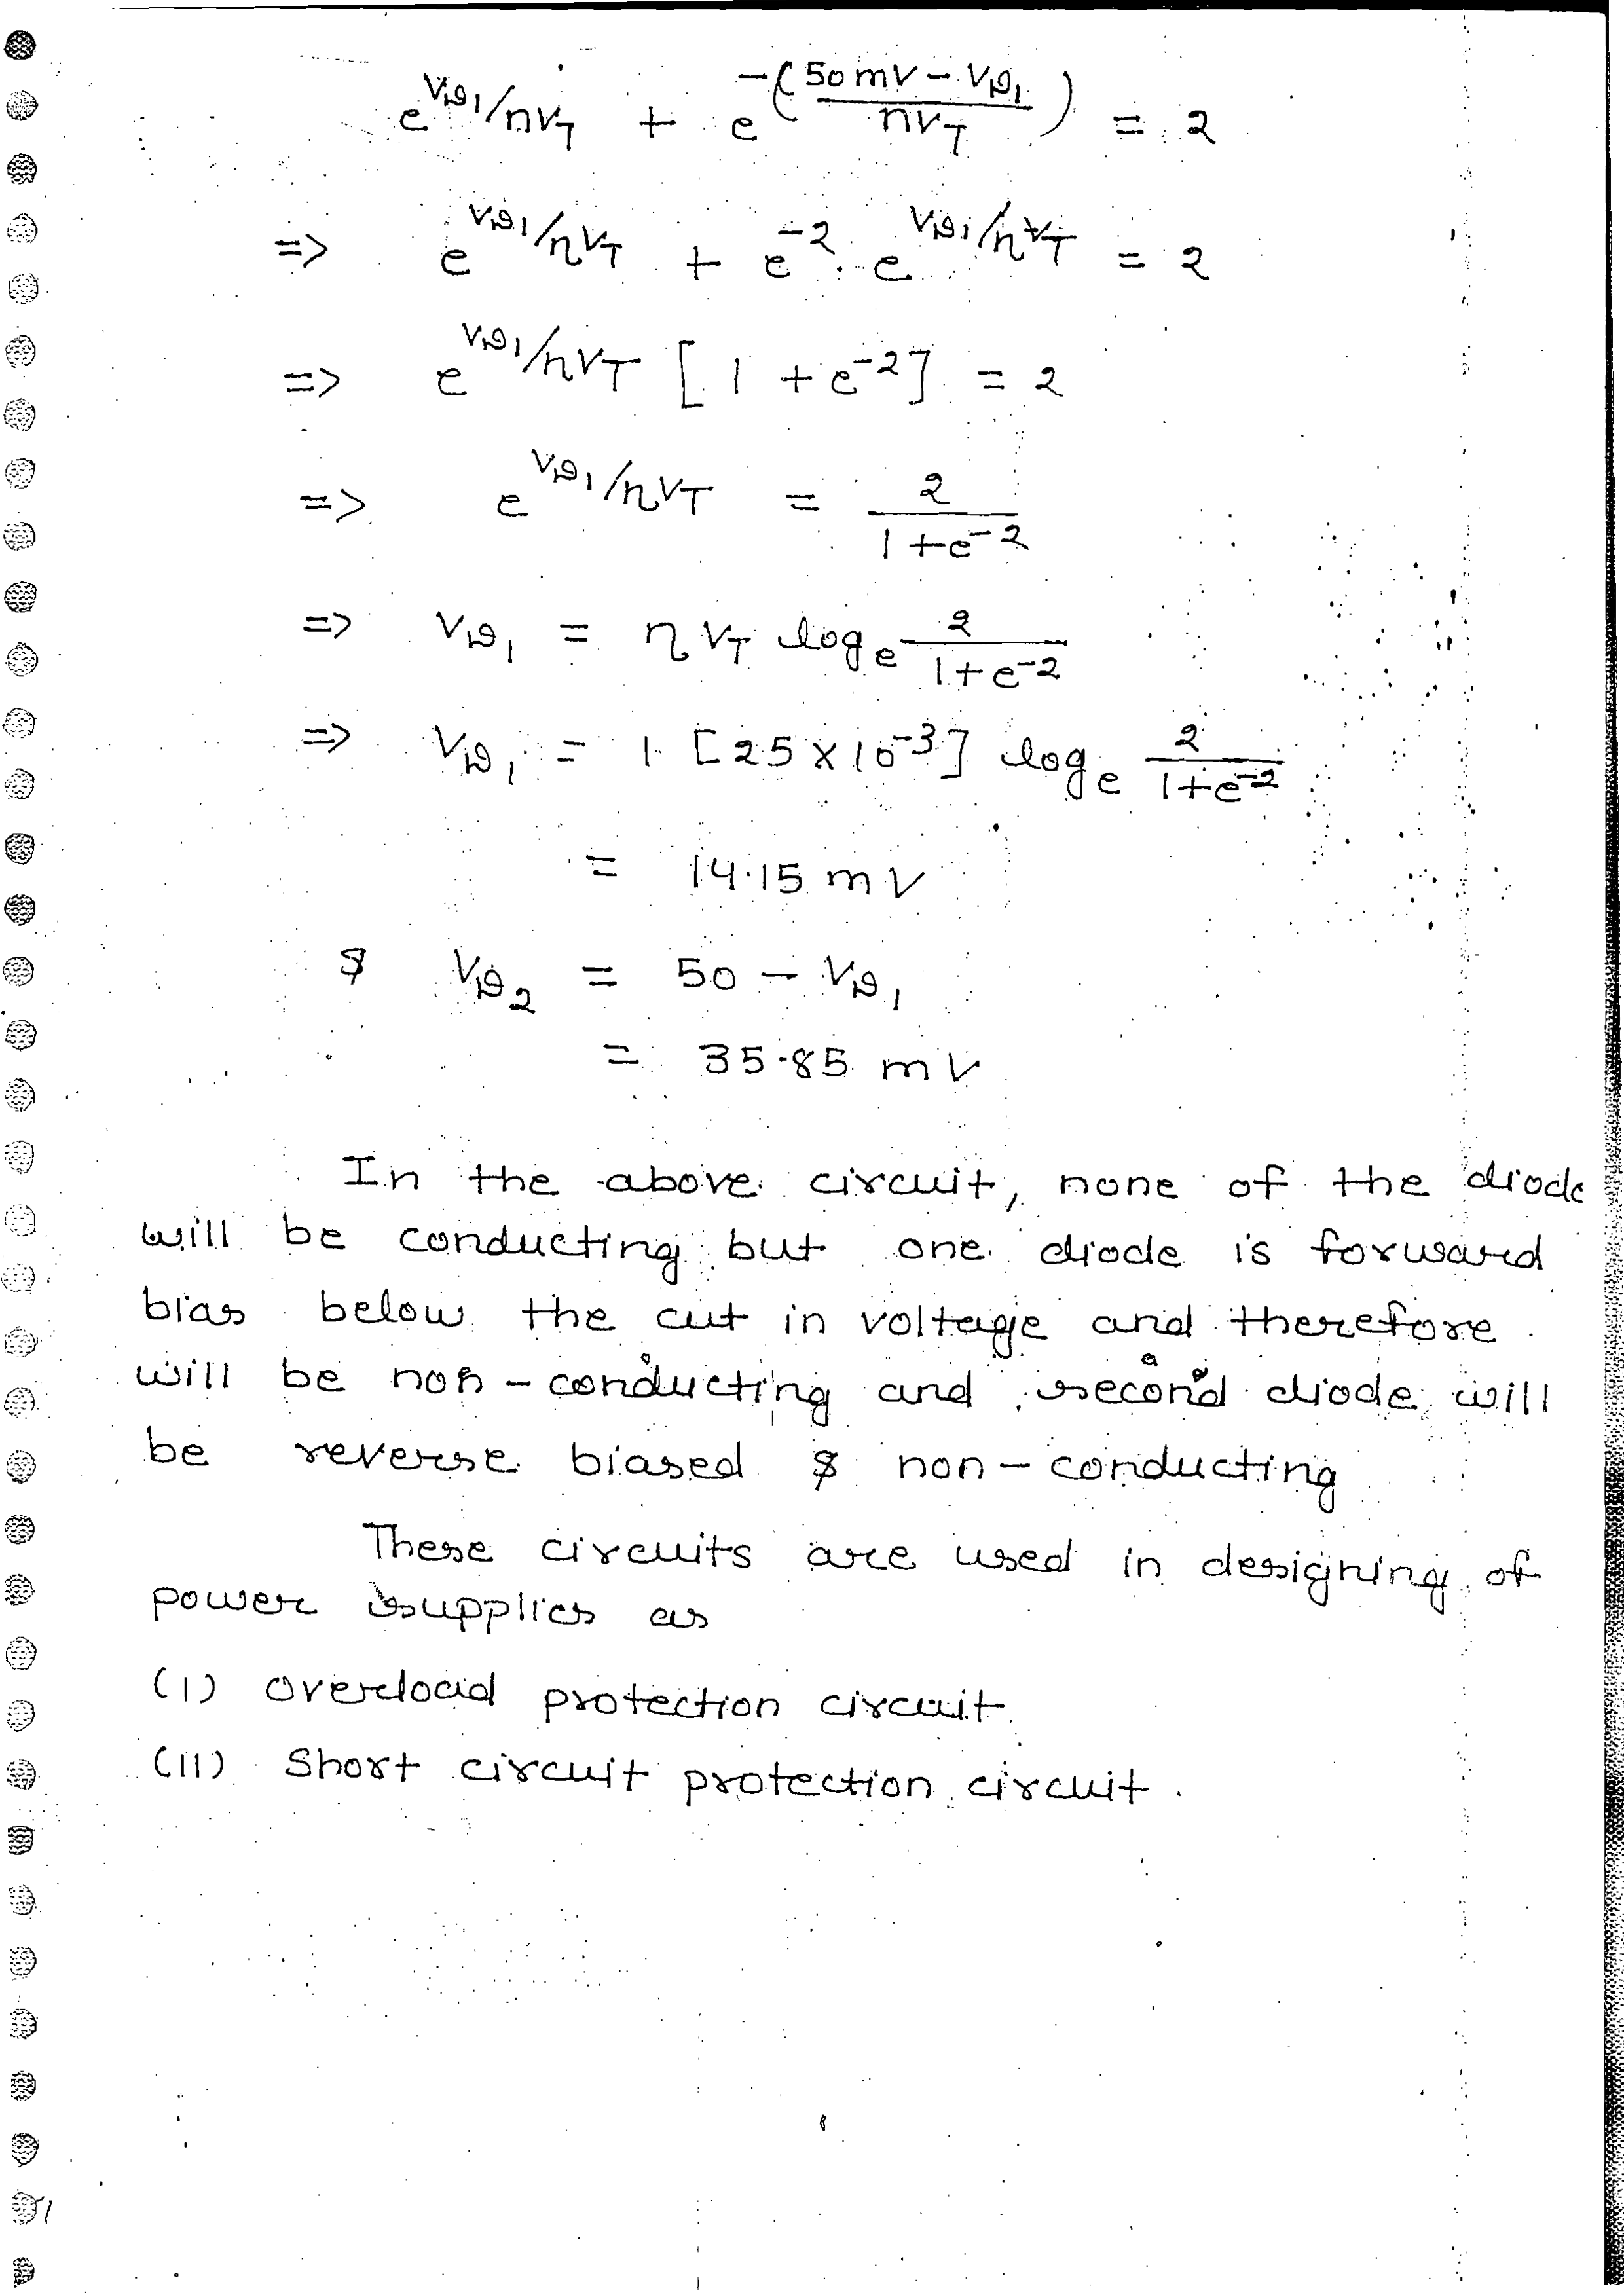 e^{V_{D1}/ηV_T} + e^{-(\frac{50mV - V_{D1}}{ηV_T})} = 2
=> e^{V_{D1}/ηV_T} + e^{-2} . e^{V_{D1}/ηV_T} = 2
=> e^{V_{D1}/ηV_T} [1 + e^{-2}] = 2
=> e^{V_{D1}/ηV_T} = \frac{2}{1+e^{-2}}
=> V_{D1} = η V_T log_e \frac{2}{1+e^{-2}}
=> V_{D1} = 1 [25 × 10^{-3}] log_e \frac{2}{1+e^{-2}}
= 14.15 mV
& V_{D2} = 50 - V_{D1}
= 35.85 mV
In the above circuit, none of the diode
will be conducting but one diode is forward
bias below the cut in voltage and therefore
will be non-conducting and second diode will
be reverse biased & non-conducting
These circuits are used in designing of
power supplies as
(I) Overload protection circuit
(II) Short circuit protection circuit.